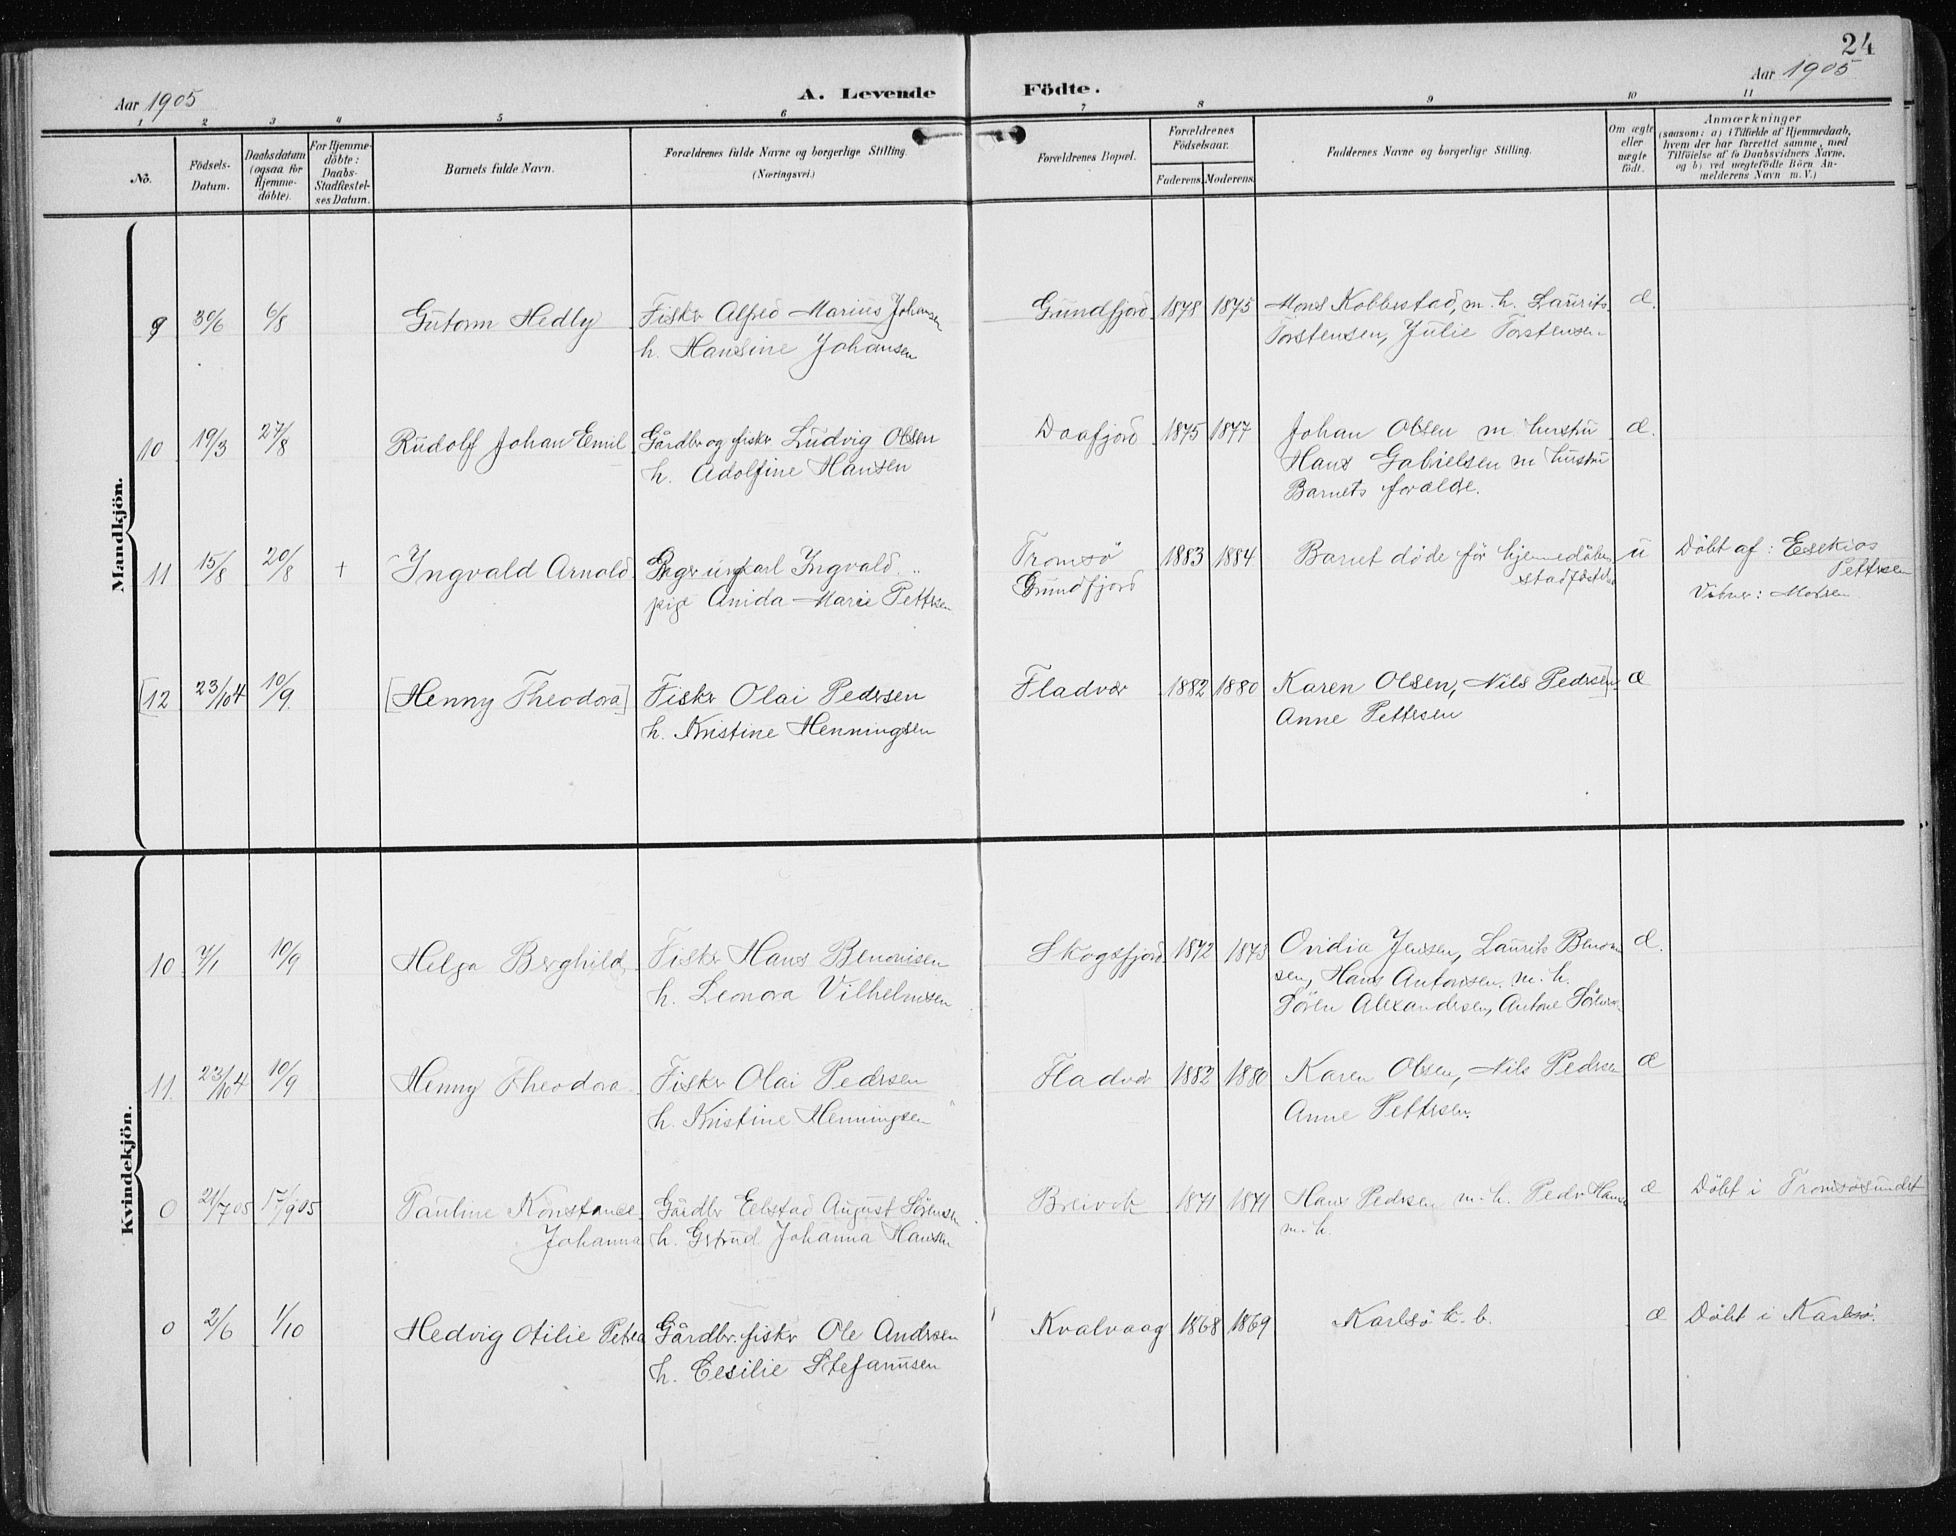 24
Aar 1905
A. Levende Födte.
Aar 1905
1 2 3 4 5 6 7 8 9 10 11
No.
Födsels-
Datum.
Daabsdatum
(ogsaa for
Hjemme-
döbte).
For Hjemme-
döbte:
Daabs-
Stadfæstel-
ses Datum.
Barnets fulde Navn.
Forældrenes fulde Navne og borgerlige Stilling.
(Næringsvei.)
Forældrenes Bopæl.
Forældrenes
Födselsaar.
Faderens. Moderens.
Faddernes Navne og borgerlige Stilling.
Om ægte
eller
uægte
födt.
Anmærkninger
(saasom: a) i Tilfælde af Hjemmedaab,
hvem der har forrettet samme, med
Tilföielse af to Daabsvidners Navne,
og b) ved uægtefödte Börn An-
melderens Navn m. V.)
Mandkjön.
9 30/6 6/8 Gutorm Hedly Fisker Alfred Marius Johansen Gundfjord 1878 1875 Mons Kobbestad, m. h. Laurits æ.
h. Hansine Johansen Torstensen, Julie Torstensen
10 19/3 27/8 Rudolf Johan Emil Gårdbr og fisker Ludvig Olsen Daafjord 1875 1877 Johan Olsen m hustru æ.
h. Adolfine Hansen Hans Gabrielsen m hustru
Barnets forældre.
11 15/8 20/8 + Ingvald Arnold ungkarl Ingvald Tromsö 1883 1884 Barnet döde för hjemmedåben u Döbt af: Esekias
stadfæstelse Pettersen
pige Anida Marie Pettersen Gundfjord
[12 23/10 4 10/9 [Henny Theodora] Fisker Olai Pedersen Fladvær 1882 1880 Karen Olsen, Nils Pedersen] æ
h. Kristine Henningsen Anne Pettersen
Kvindekjön.
10 10/9 Helga Berghild Fisker Hans Benonisen Skogsfjord 1872 1873 Ovidia Jensen, Laurits Benoni- æ.
h. Leonora Vilhelmsen sen, Hans Antonsen m. h.
Sören Alexandersen, Antone
11. 23/10 4 10/9 Henny Theodora Fisker Olai Pedersen Fladvær 1882 1880 Karen Olsen, Nils Pedersen æ
h. Kristine Henningsen Anne Pettersen.
0 21/7 05 17/9 05 Pauline Konstance Gårdbr Edstad August Sörensen Breivik 1871 1871 Hans Pedersen m. h. Peder Hansen æ Döbt i Tromsösundet
Johanna h. Gertrud Johanna Hansen m. h.
0 2/6 1/10 Hedvig Otilie Petrea Gårdbr. fisker Ole Andersen Kvalvaag 1868 1869 Karlsö k. b. æ Döbt i Karlsö.
h. Cesilie Stefanusen